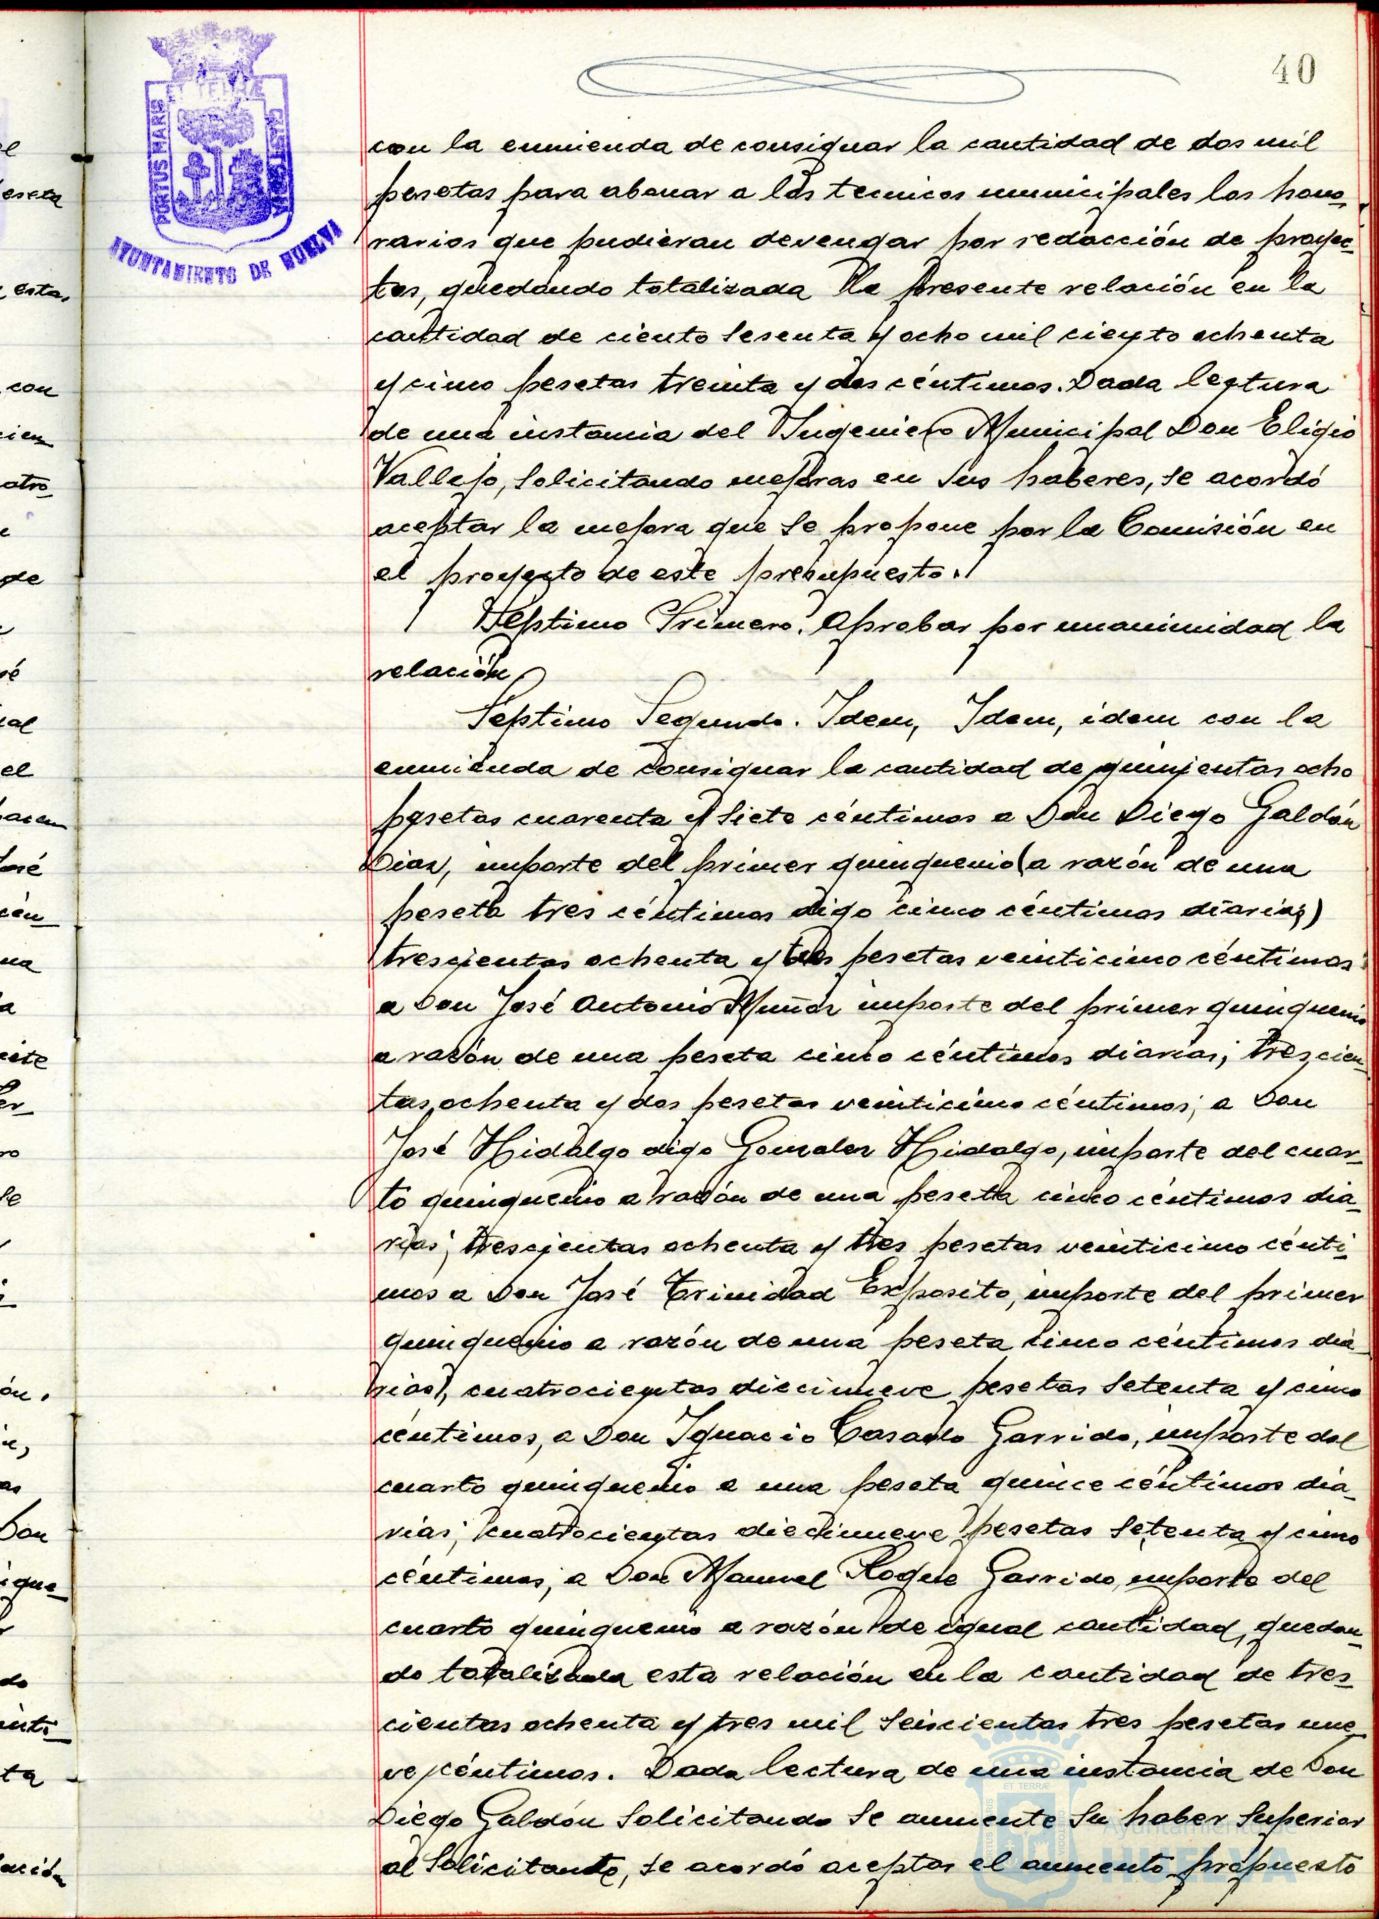 40
PORTUS MARIS
ET TERRÆ
CUSTODIA
AYUNTAMIENTO DE HUELVA
con la enmienda de consignar la cantidad de dos mil
pesetas para abonar a los tecnicos municipales los hono-
rarios que pudieran devengar por redacción de proyec-
tos, quedando totalizada la presente relación en la
cantidad de ciento sesenta y ocho mil ciento ochenta
y cinco pesetas treinta y dos céntimos. Dada lectura
de una instancia del Ingeniero Municipal Don Eligio
Vallejo, solicitando mejoras en sus haberes, se acordó
aceptar la mejora que se propone por la Comisión en
el proyecto de este presupuesto.
Septimo Primero. Aprobar por unanimidad la
relación
Séptimo Segundo. Idem, Idem, idem con la
enmienda de consignar la cantidad de quinientas ocho
pesetas cuarenta y siete céntimos a Don Diego Galdón
Dias, importe del primer quinquenio (a razón de una
peseta tres céntimos digo cinco céntimos diarias;)
trescientas ochenta y tres pesetas veinticinco céntimos
a Don José Antonio Muñoz importe del primer quinquenio
a razón de una peseta cinco céntimos diarias; trescien-
tas ochenta y dos pesetas veinticinco céntimos; a Don
José Hidalgo digo Gonzalez Hidalgo, importe del cuar-
to quinquenio a razón de una peseta cinco céntimos dia-
rias; trescientas ochenta y tres pesetas veinticinco cénti-
mos a Don José Trinidad Exposito, importe del primer
quinquenio a razón de una peseta cinco céntimos dia-
rias, cuatrocientas diecinueve pesetas setenta y cinco
céntimos, a Don Ignacio Casado Garrido, importe del
cuarto quinquenio a una peseta quince céntimos dia-
rias; cuatrocientas diecinueve pesetas setenta y cinco
céntimos, a Don Manuel Roque Garrido, importe del
cuarto quinquenio a razón de igual cantidad, quedan-
do totalizada esta relación en la cantidad de tres-
cientas ochenta y tres mil seiscientas tres pesetas nue-
ve céntimos. Dada lectura de una instancia de Don
Diego Galdón solicitando se aumente su haber superior
al solicitante, se acordó aceptar el aumento propuesto
Ayuntamiento de
HUELVA